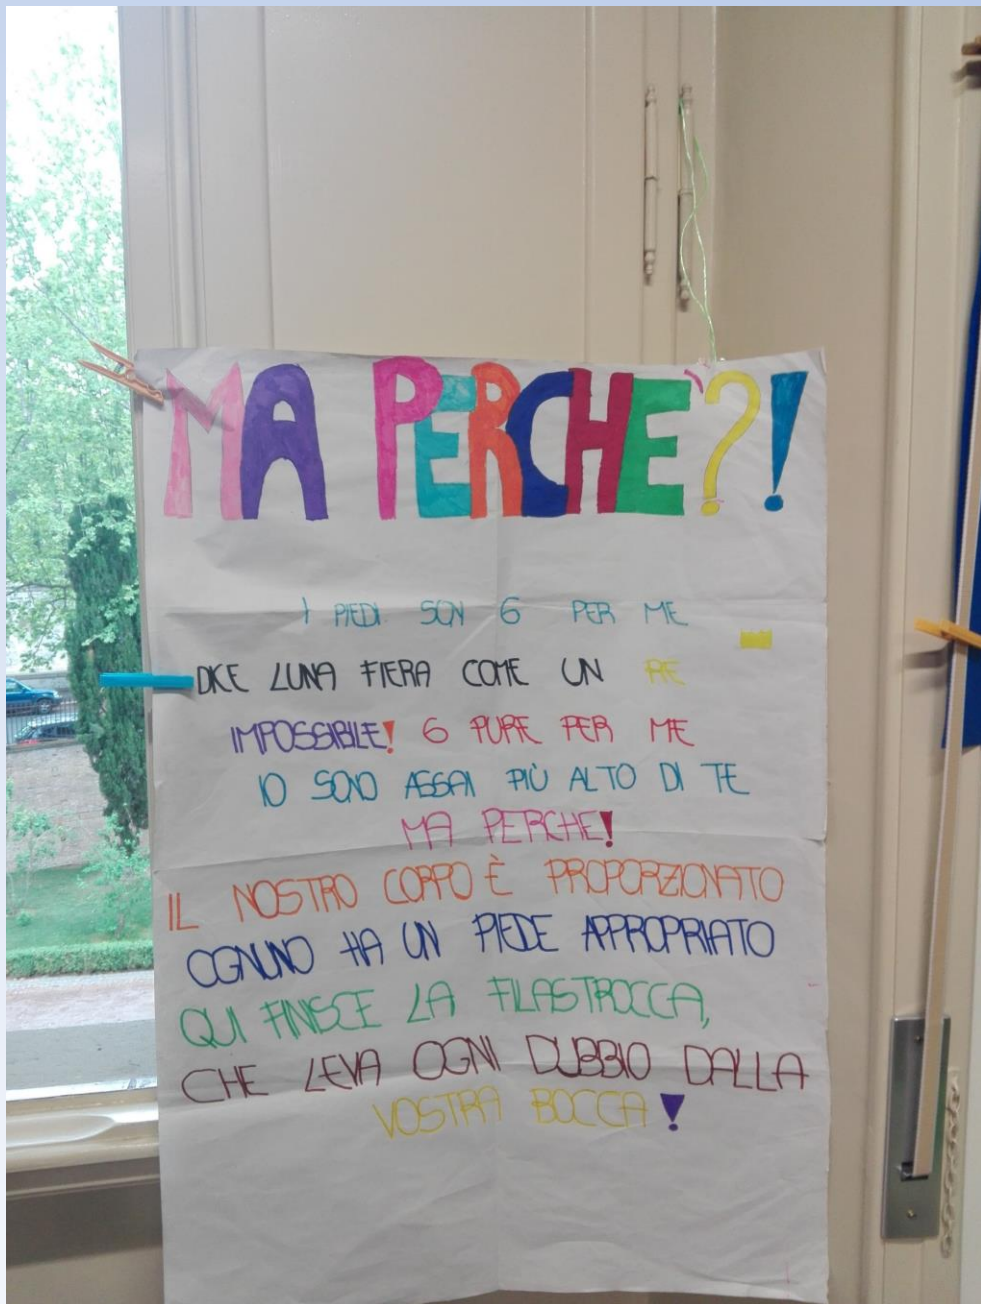 MA PERCHE'?!
I PIEDI SON 6 PER ME
DICE LUNA FIERA COME UN RE
IMPOSSIBILE! 6 PURE PER ME
IO SONO ASSAI PIÙ ALTO DI TE
MA PERCHE!
IL NOSTRO CORPO È PROPORZIONATO
OGNUNO HA UN PIEDE APPROPRIATO
QUI FINISCE LA FILASTROCCA,
CHE LEVA OGNI DUBBIO DALLA
VOSTRA BOCCA!